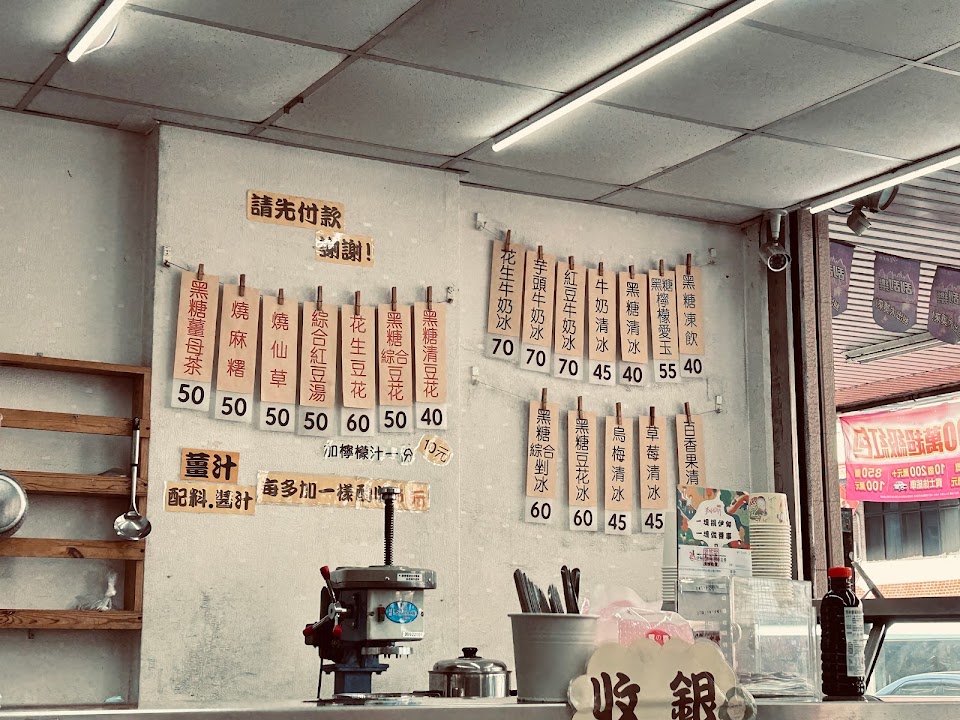 請先付款
謝謝!
黑糖薑母茶
50
燒麻糬
50
燒仙草
50
綜合紅豆湯
50
花生豆花
60
黑糖綜合豆花
50
黑糖清豆花
40
花生牛奶冰
70
芋頭牛奶冰
70
紅豆牛奶冰
70
牛奶清冰
45
黑糖清冰
40
黑糖檸檬愛玉
55
黑糖凍飲
40
黑糖綜合剉冰
60
黑糖豆花冰
60
烏梅清冰
45
草莓清冰
45
百香果清
加檸檬汁一份
10元
薑汁
配料.醬汁
每多加一樣
元
收銀